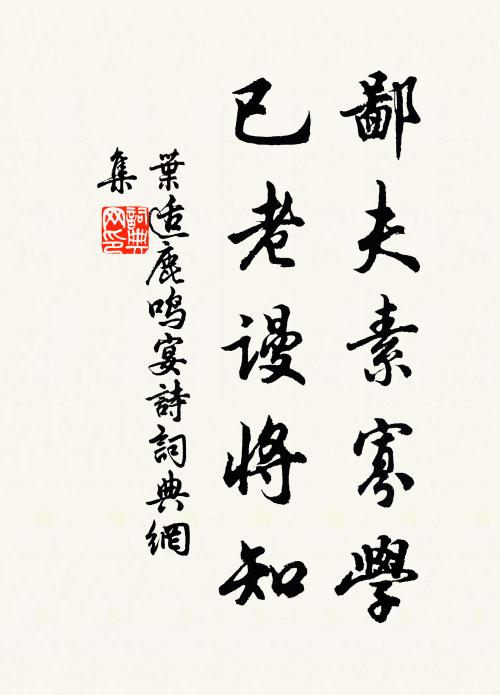 鄙夫素寡學
已老謾將知
葉适鹿鳴宴詩詞典網
集
詞典網印